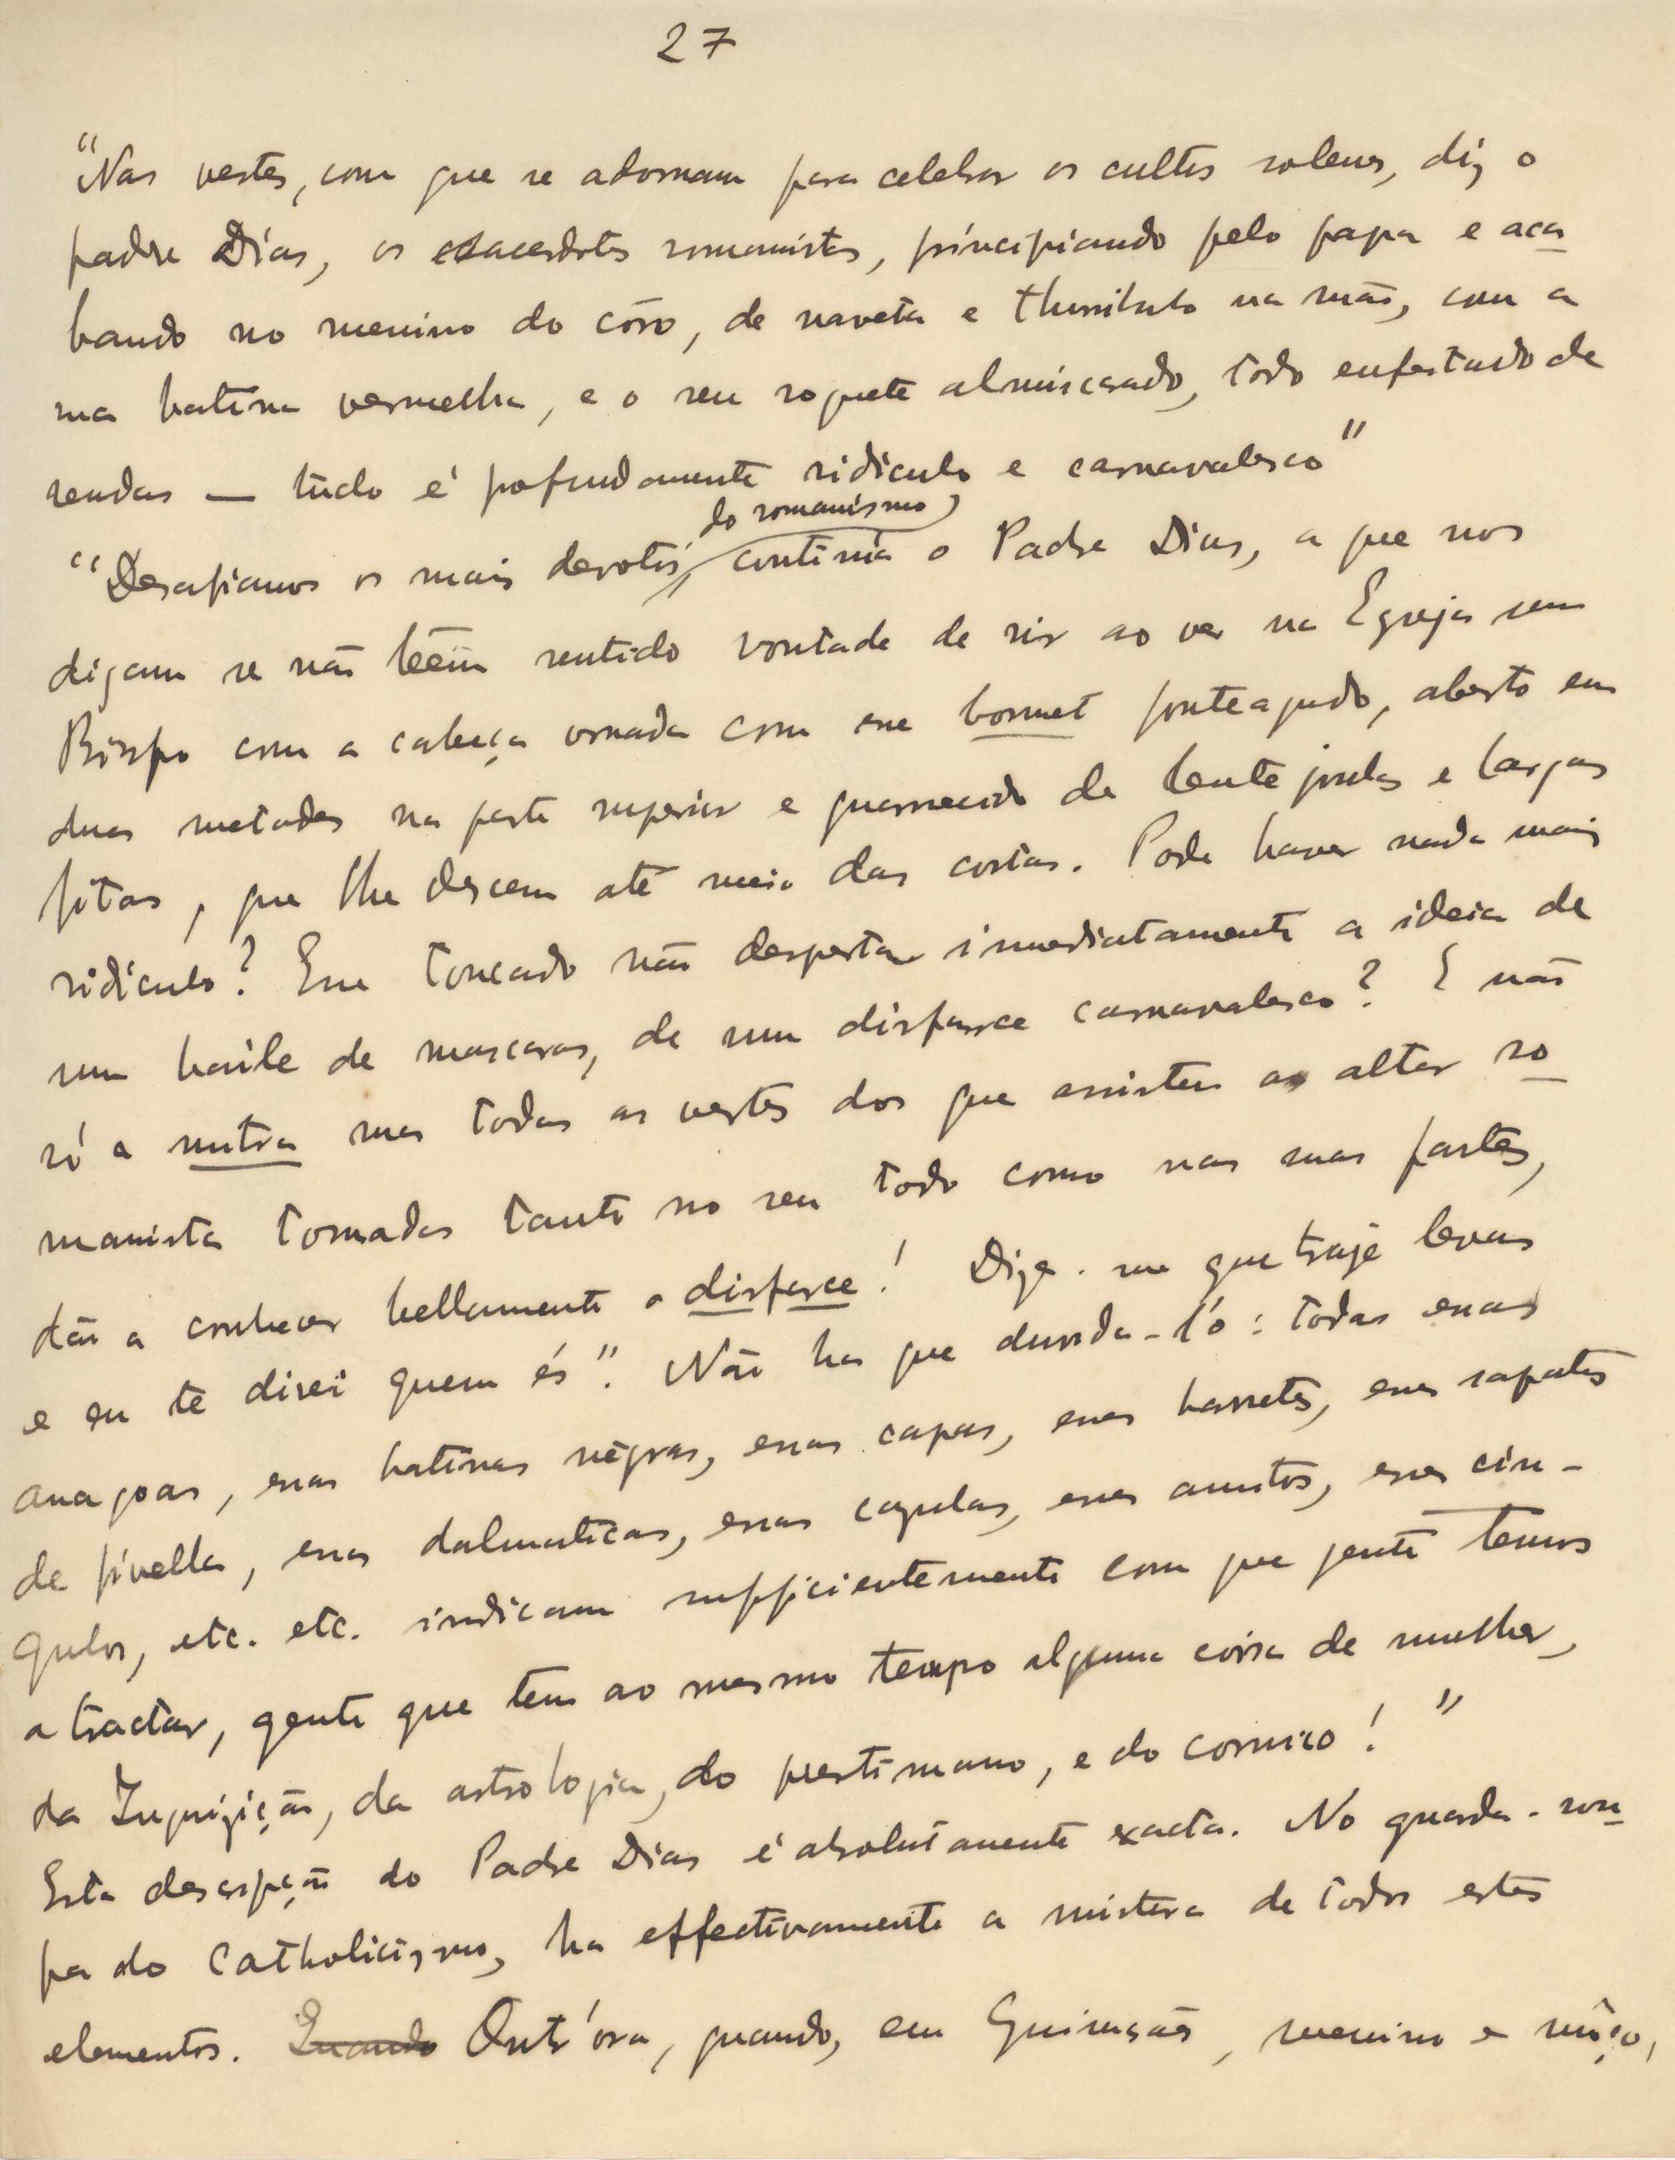 27
"Nas vestes, com que se adornam para celebrar os cultos solenes, diz o
padre Dias, os sacerdotes romanistas, principiando pelo papa e aca
bando no menino do côro, de naveta e thuribulo na mão, com a
sua batina vermelha, e o seu roquete almiscarado, todo enfeitado de
rendas — tudo é profundamente ridiculo e carnavalesco"
do romanismo,
"Desafiamos os mais devotos, continúa o Padre Dias, a que nos
digam se não teem sentido vontade de rir ao ver na Egreja um
Bispo com a cabeça ornada com esse bonnet ponteagudo, aberto em
duas metades na parte superior e guarnecido de lentejoulas e largas
fitas, que lhe descem até meio das costas. Pode haver nada mais
ridiculo? Esse toucado não desperta immediatamente a ideia de
um baile de mascaras, de um disfarce carnavalesco? E não
só a mitra mas todas as vestes dos que assistem ao altar ro
manista tomadas tanto no seu todo como nas suas partes,
dão a conhecer bellamente o disfarce! Dize-me que traje levas
e eu te direi quem és". Não ha que duvida-l'o: todas essas
anagoas, essas batinas negras, essas capas, esses barretes, esses sapatos
de fivella, essas dalmaticas, essas cogulas, esses amitos, esses cin-
gulos, etc. etc. indicam sufficientemente com que gente temos
a tractar, gente que tem ao mesmo tempo alguma coisa de mulher,
da Inquizição, da astrologia, do prestimano, e do comico!"
Esta descripção do Padre Dias é absolutamente exacta. No guarda-rou
pa do Catholicismo, ha effectivamente a mistura de todos estes
elementos. Quando Outr'ora, quando, em Guimarães, menino e môço,